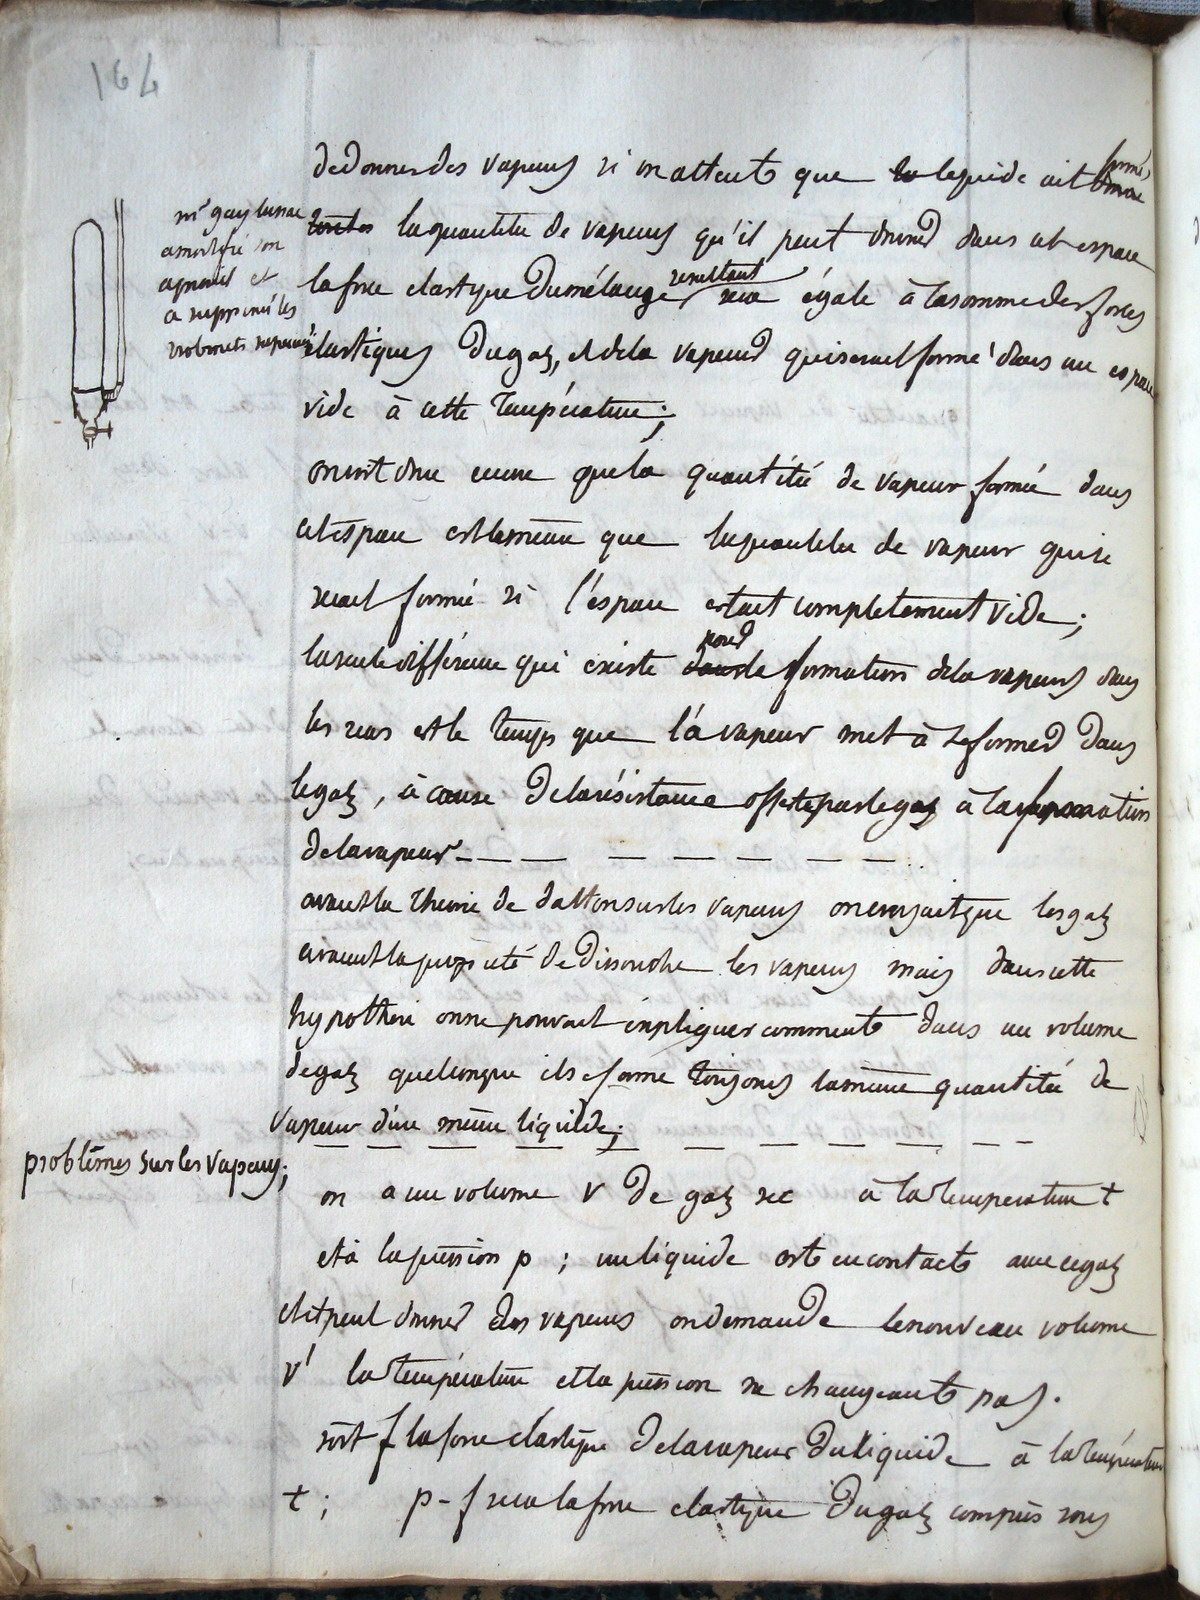 164
de donner des vapeurs si on attent que le liquide ait formé
toutes la quantitée de vapeurs qu'il peut donner dans cet espace
la force elastique du mélange resultant sera égale à la somme des forces
élastiques du gaz, et de la vapeur qui serait formé dans un espace
vide à cette température;
mr gay lussac
a modifié son
apareil et
a supprimé les
robinets superieurs
on voit donc encore que la quantitée de vapeur formée dans
cet éspace est la même que la quantitée de vapeur qui se
serait formée si l'éspace estait completement vide;
la seule différence qui existe pour la formation de la vapeurs dans
les deux est le temps que la vapeur met à se former dans
le gaz, à cause de la résistance offerte par le gaz à la formation
de la vapeur
avant la theorie de dalton sur les vapeurs on croyait que les gaz
avaient la propriété de dissoudre les vapeurs mais dans cette
hypothese on ne pouvait expliquer comment dans un volume
de gaz quelconque il se forme toujours la même quantitée de
vapeur d'un même liquide;
problêmes sur les vapeurs;
on a un volume v de gaz sec à la température t
et à la pression p ; un liquide est en contact avec ce gaz
et peut donner des vapeurs on demande le nouveau volume
v' la température et la pression ne changeant pas.
soit f la force élastique de la vapeur du liquide à la température
t ; p-f sera la force elastique du gaz compris sous